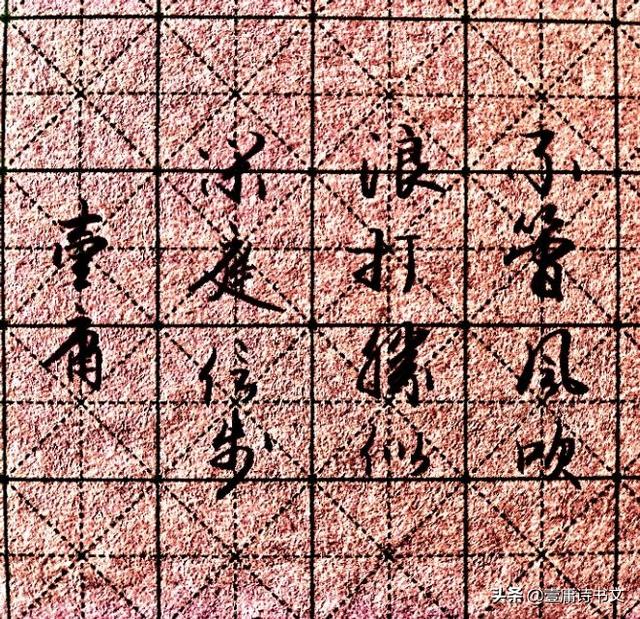 不管風吹
浪打勝似
闲庭信步
壹肃
头条 @壹肃诗书文